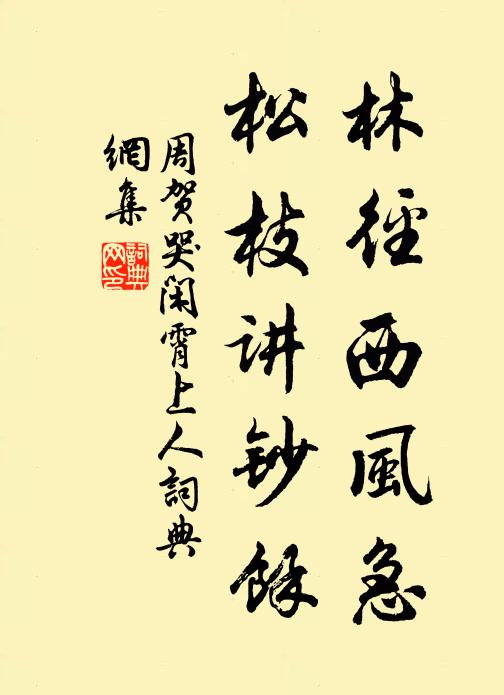 林徑西風急
松枝讲鈔餘
周贺哭闲霄上人詞典
網集
詞典網印